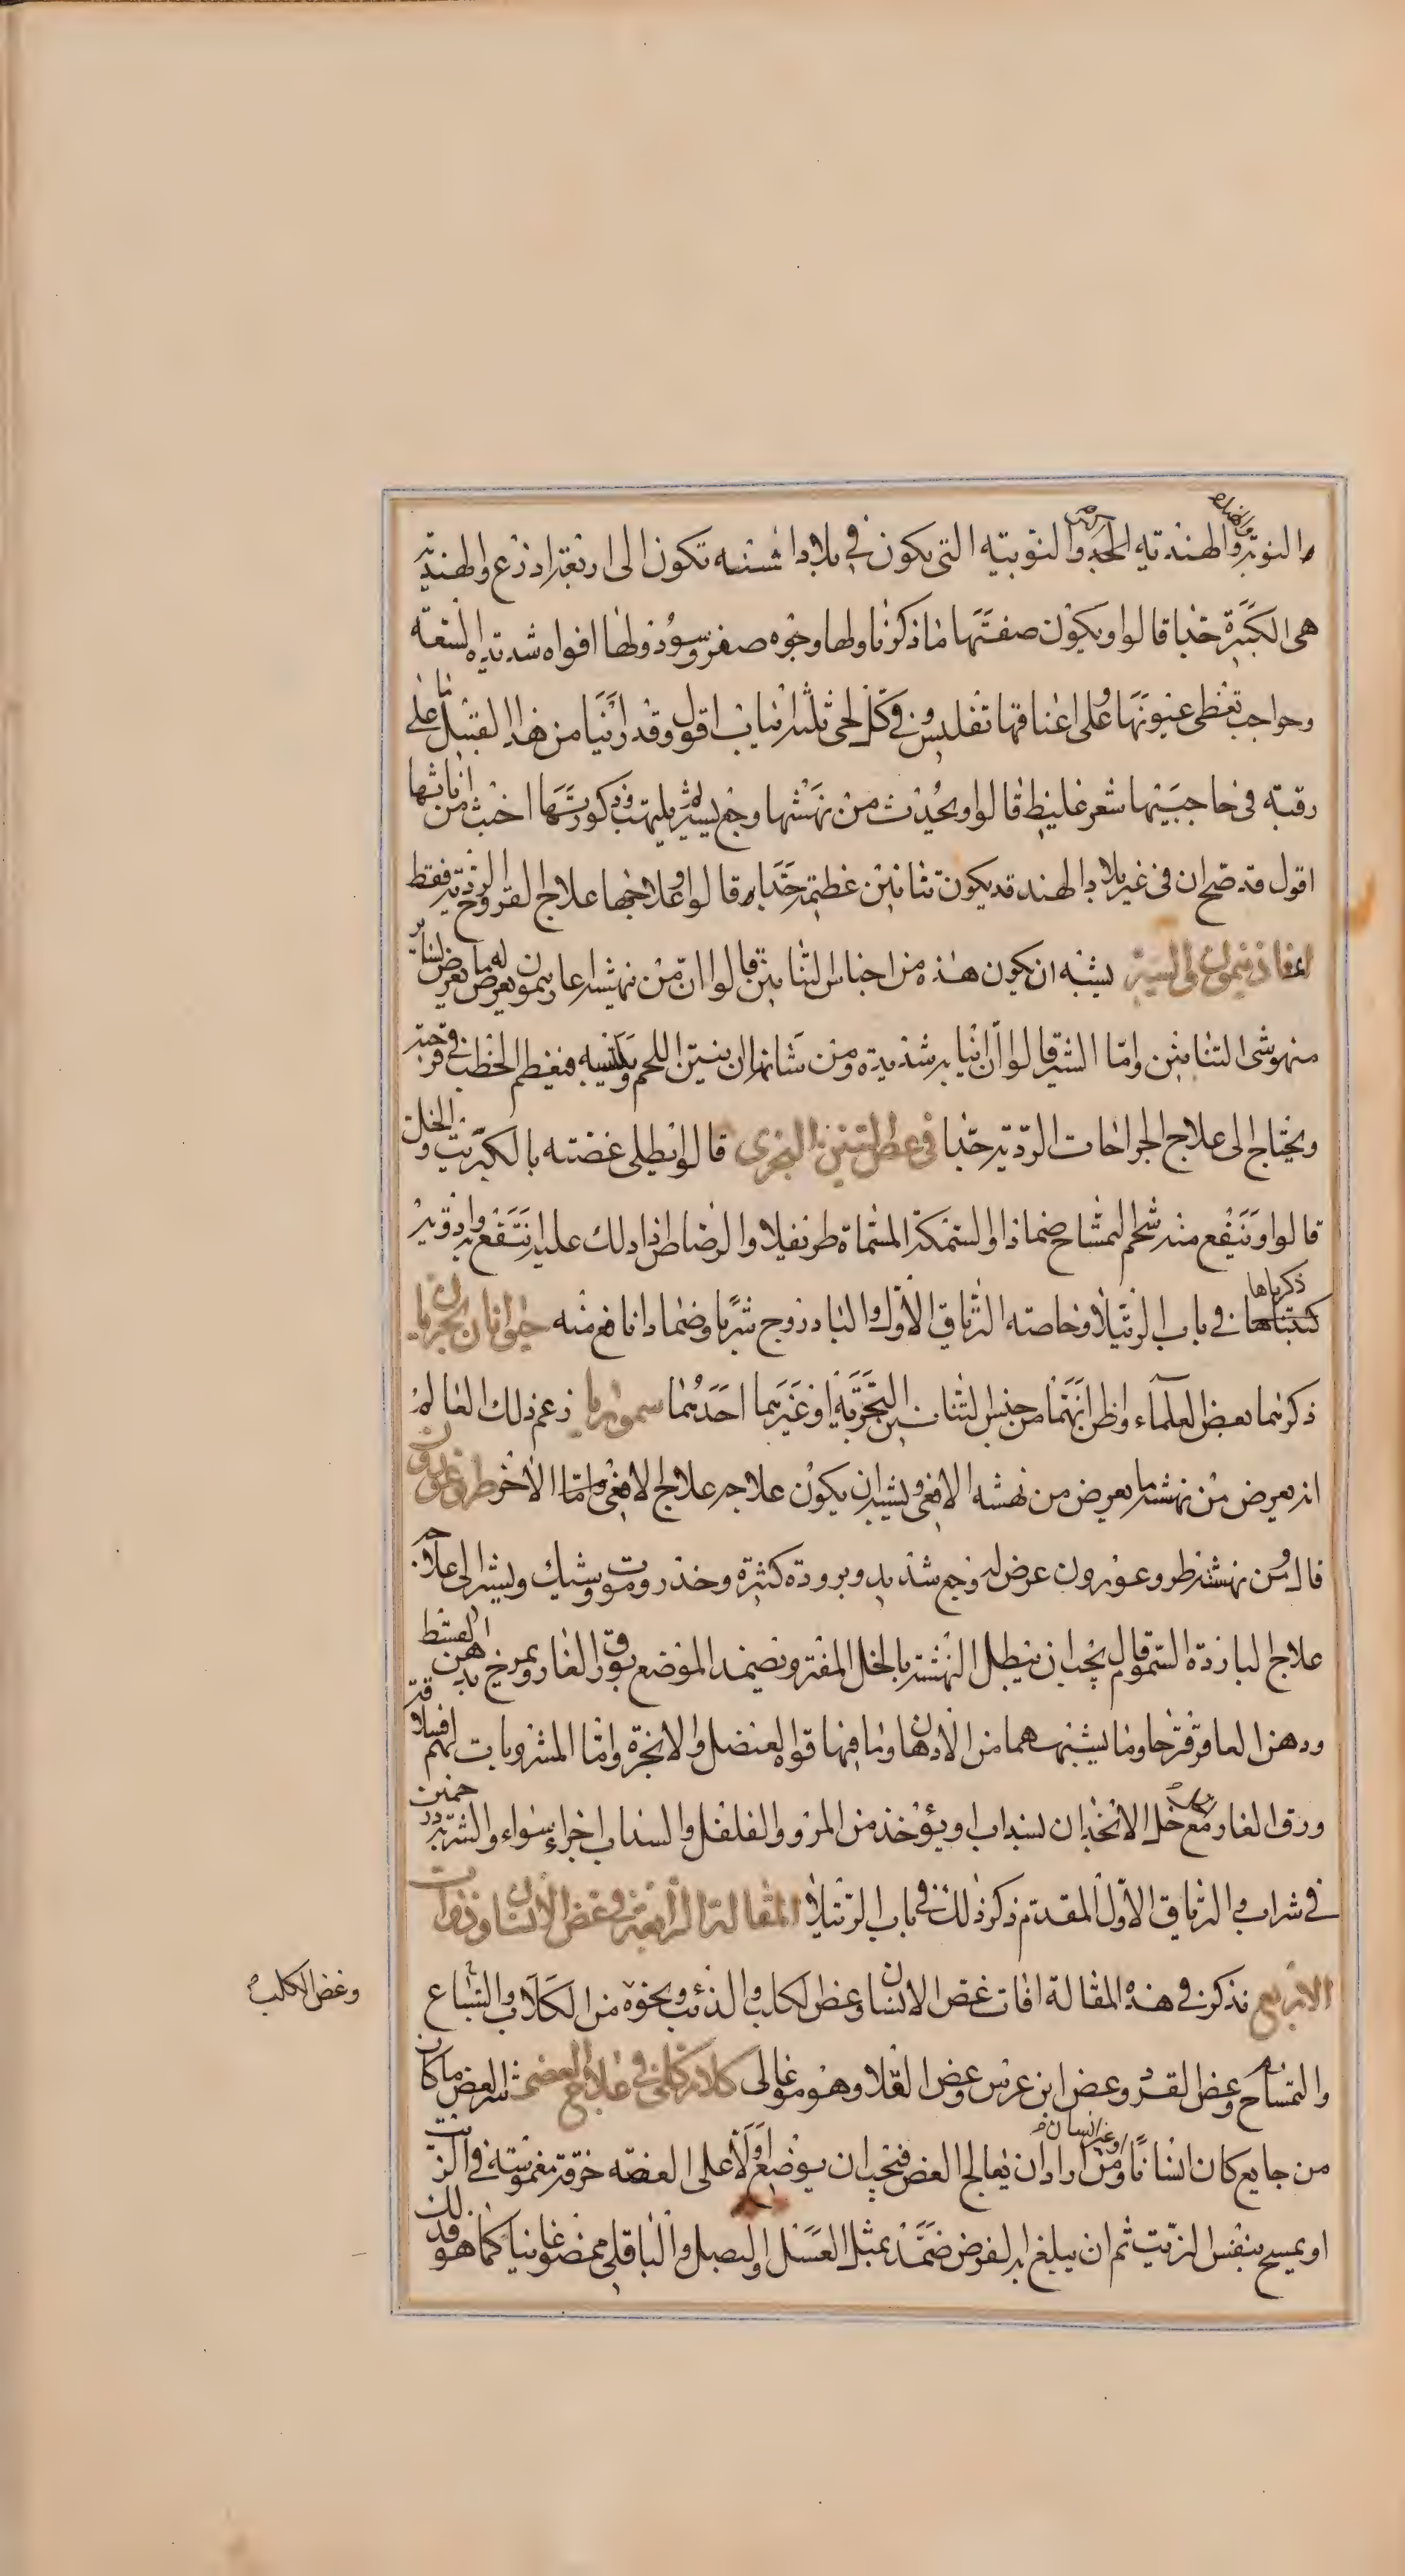 النوبية والهندية الجد والنوبية التي يكون في بلاد اسنه تكون الى اربعة اذرع والهندية
هي الكبيرة جدا قالوا ويكون صفتها ما ذكرنا ولها وجوه صفر وسود ولها افواه شديدة السعة
وحواجب تغطي عيونها وعلى اعناقها تفليس وفي كل لحى ثلثة انياب اقول وقد راينا من هذا القبيل ما على
رقبته في حاجبيها شعر غليظ قالوا ويحدث من نهشها وجع يسير ثم يلتهب وذكورتها اخبث من اناثها
اقول قد صح ان في غير بلاد الهند قد يكون تنانين عظيمة جدا قالوا وعلاجها علاج القروح الردية فقط
يشبه ان يكون هذه من اجناس التنانين قالوا ان من نهشه اغارسمون يعرض له ما يعرض لسائر
منهوشى التنانين واما السير قالوا ان انيابه شديدة ومن شانها ان ينتن اللحم فيعظم الخطب في قرحته
ويحتاج الى علاج الجراحات الردية جدا في عض التنين البحرى قالوا يطلى عضته بالكبريت والخل
قالوا وينفع منه شحم التمساح ضمادا والسمكة المسماة طريفلا والرصاص اذا دلك عليه انتفع به وادوية
كتبناها ذكرناها في باب الرتيلا وخاصته الترياق الاول والبادزوج شربا وضمادا نافع منه حيوانان بحريان
ذكرهما بعض العلماء واظن انهما من جنس التنانين البحرية او غيرهما احدهما سموريا زعم ذلك العالم
انه يعرض من نهشه ما يعرض من نهشة الافعى ويشبه ان يكون علاجه علاج الافعى واما الاخر طروغورون
قال ومن نهشته طروغورون عرض له وجع شديد وبرودة كثيرة وخدر وموت وشيك ويشير الى علاجه
علاج الباردة السموم قال يجب ان ينطل النهشة بالخل المفتر ويضمد الموضع بورق الغار ويمرخ بدهن القسط
ودهن العاقرقرحا وما يشبههما من الادهان وما فيها قوة العنصل والانجرة واما المشروبات لهم
ورق الغار مع خل الانجذان لسداب او يؤخذ من المر والفلفل والسداب اجزاء سواء والشربة درخمين
في شراب والترياق الاول المقدم ذكر ذلك في باب الرتيلا المقالة الرابعة في عض الانسان وذوات
الاربع نذكر في هذه المقالة افات عض الانسان وعض الكلب والذئب ونحوه من الكلاب والسباع
وعض الكلب
والتمساح وعض القرد وعض ابن عرس وعض العلا وهو موغالى كلام كلى في علاج العض شر العض ما كان
من جايع كان انسانا او غير انسان ومن اراد ان يعالج العض فيجب ان يوضع اولا على العضة خرقة مغموسة في الزيت
او يمسح بنفس الزيت ثم ان يبلغ به الغرض ضمد بمثل العسل والبصل والباقلى ممضوغا نيا كما هو فذلك